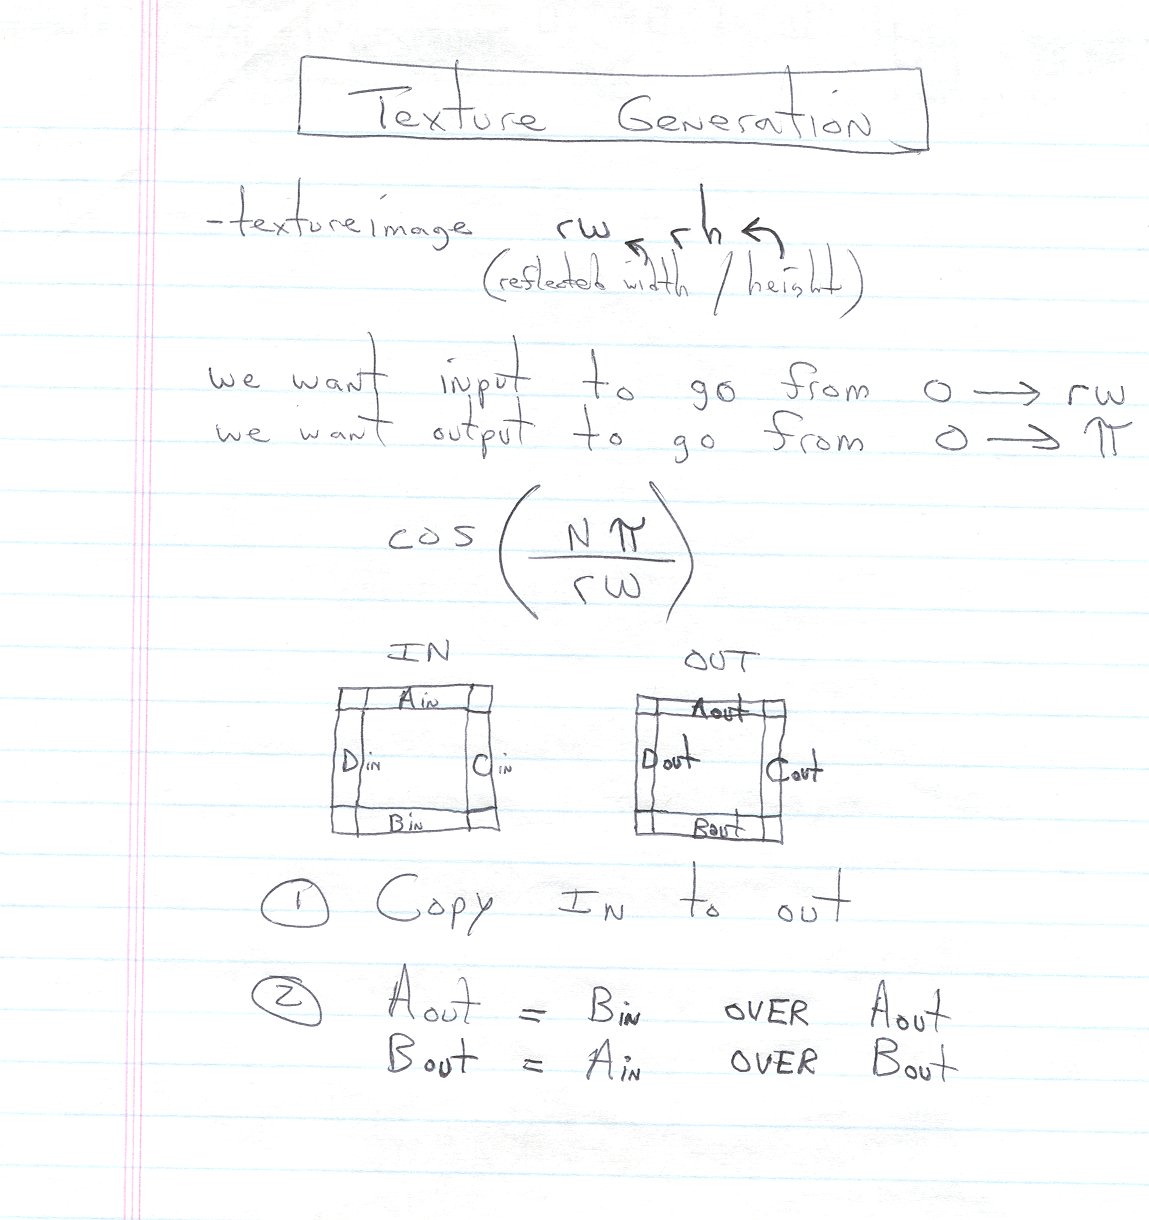 Texture Generation
-textureimage rw rh
(reflected width / height)
we want input to go from 0 → rw
we want output to go from 0 → π
cos (Nπ / rw)
IN OUT
Ain Aout
Din Cin Dout Cout
Bin Bout
① Copy IN to out
② Aout = BIN OVER Aout
Bout = AIN OVER Bout